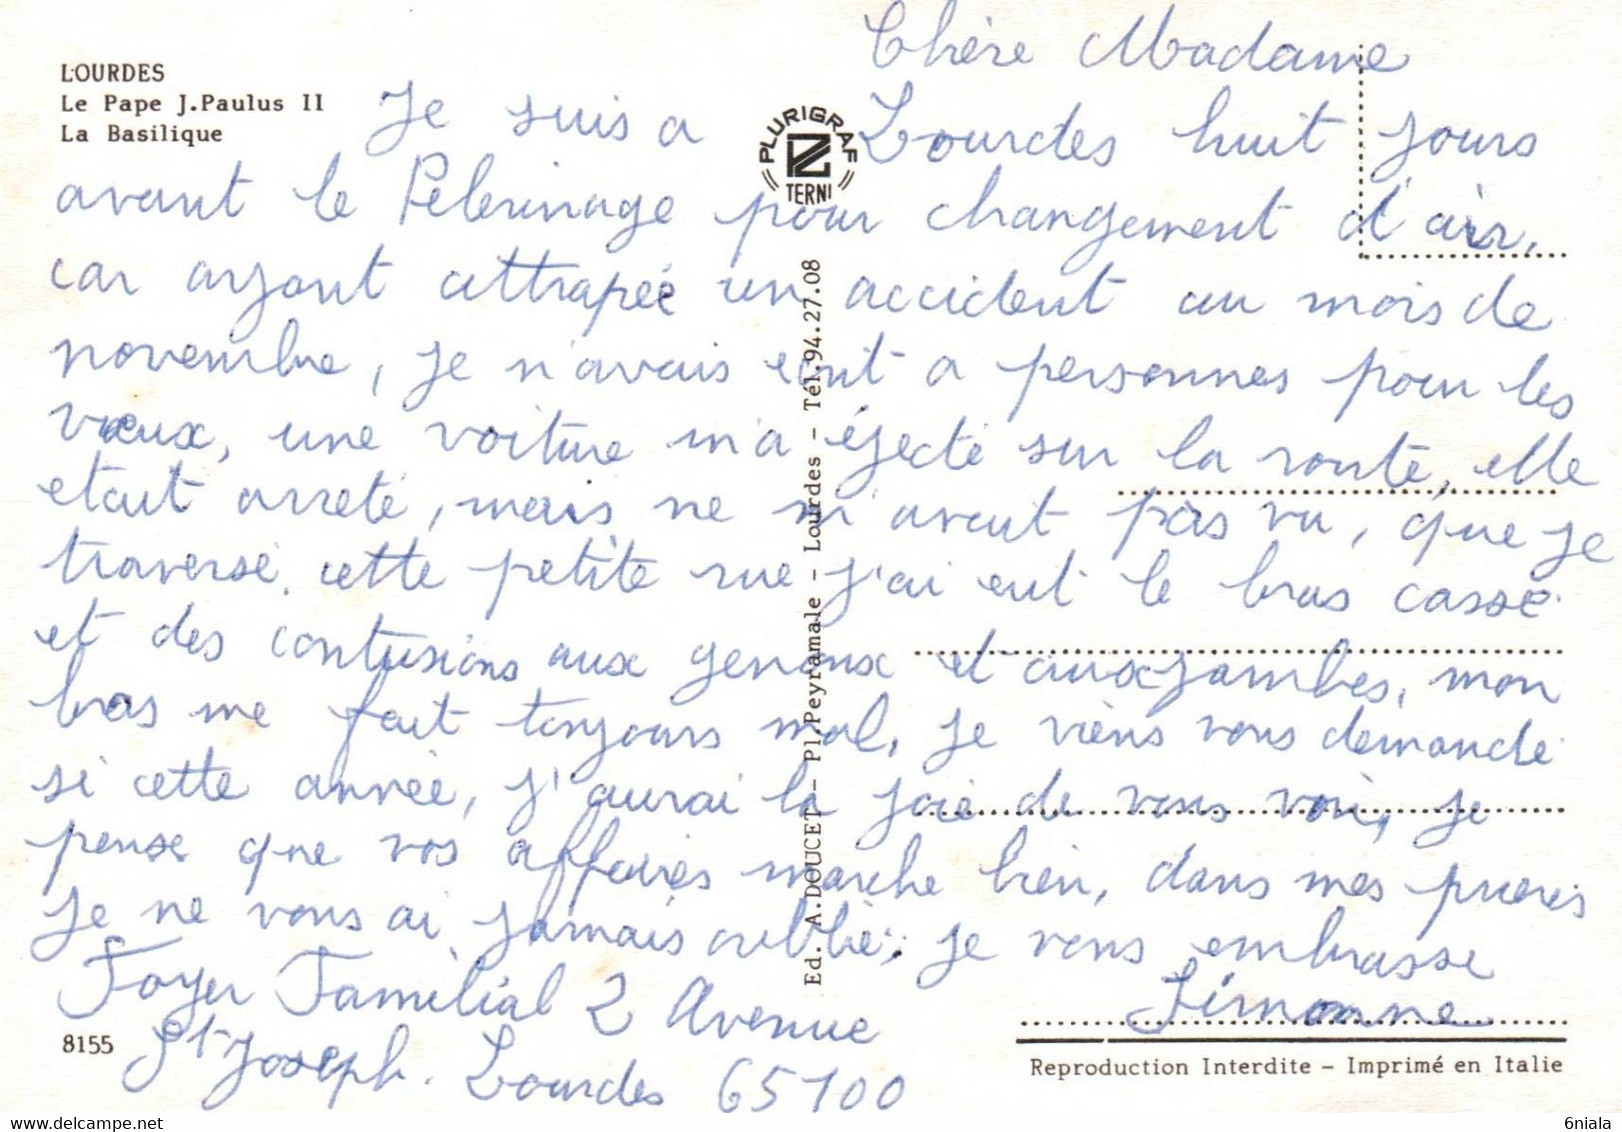 LOURDES
Le Pape J.Paulus II
La Basilique
PLURIGRAF
TERNI
Chère Madame
Je suis a Lourdes huit jours
avant le Pèlerinage pour changement d'air,
car ayant attrapée un accident au mois de
novembre, je n'avais ecrit a personnes pour les
vœux, une voiture m'a éjecté sur la route, elle
etait arreté, mais ne m'avait pas vu, que je
traversé, cette petite rue j'ai eut le bras cassé
et des contusions aux genoux et aux jambes, mon
bras me fait toujours mal, je viens vous demandé
si cette année, j'aurai la joie de vous voir, je
pense que vos affaires marche bien, dans mes prieres
je ne vous ai jamais oublié, je vous embrasse
Simonne
Foyer Familial 2 Avenue
St Joseph. Lourdes 65100
8155
Ed. A.DOUCET - Pl.Peyramale - Lourdes - Tél.94.27.08
Reproduction Interdite - Imprimé en Italie
6niala